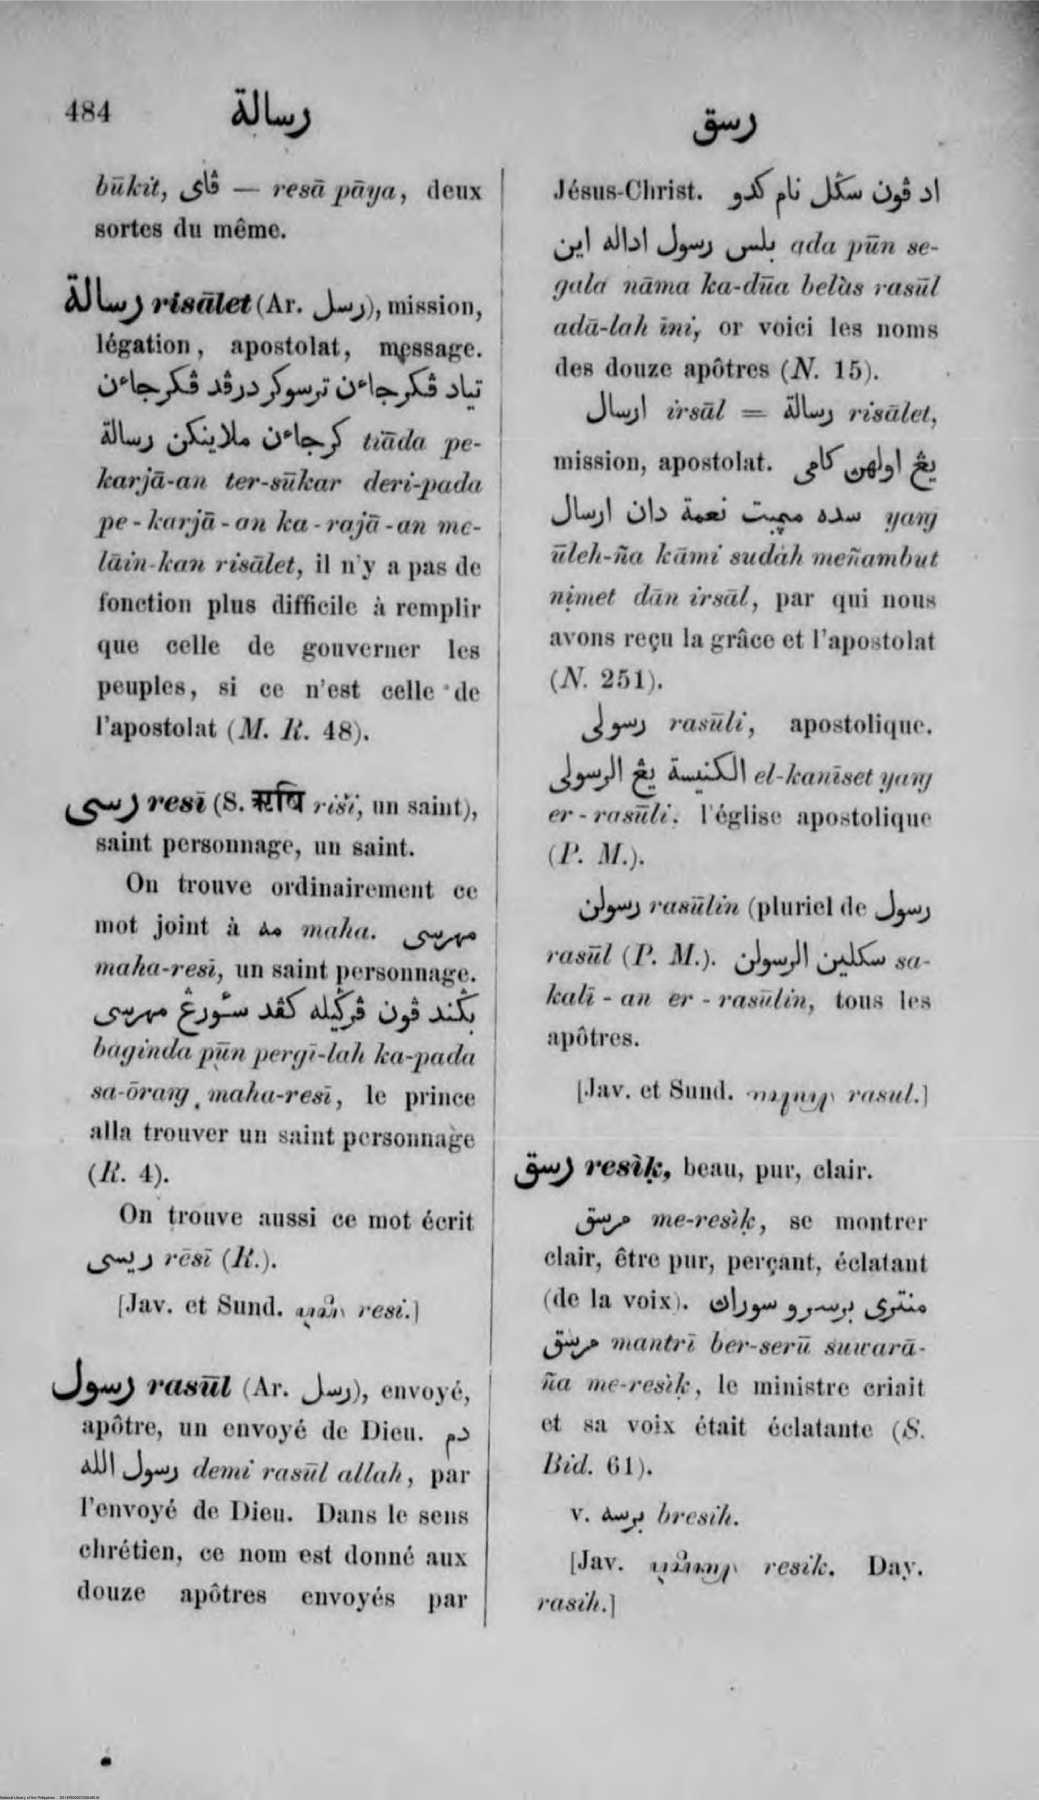 484 رسالة
رسق
būkit, ڤاى — resā pāya, deux
sortes du même.
رسالة risālet (Ar. رسل), mission,
légation, apostolat, message.
تياد ڤكرجاءن ترسوكر درڤد ڤكرجاءن
كرجاءن ملاينكن رسالة tiāda pe-
karjā-an ter-sūkar deri-pada
pe-karjā-an ka-rajā-an me-
lāin-kan risālet, il n'y a pas de
fonction plus difficile à remplir
que celle de gouverner les
peuples, si ce n'est celle de
l'apostolat (M. R. 48).
رسى resī (S. ऋषि risi, un saint),
saint personnage, un saint.
On trouve ordinairement ce
mot joint à مه maha. مهرسى
maha-resī, un saint personnage.
بڬند ڤون ڤرڬيله كڤد سؤرڠ مهرسى
baginda pūn pergī-lah ka-pada
sa-ōrang maha-resī, le prince
alla trouver un saint personnage
(R. 4).
On trouve aussi ce mot écrit
ريسى rēsī (R.).
[Jav. et Sund. resi.]
رسول rasūl (Ar. رسل), envoyé,
apôtre, un envoyé de Dieu. دم
رسول الله demi rasūl allah, par
l'envoyé de Dieu. Dans le sens
chrétien, ce nom est donné aux
douze apôtres envoyés par
Jésus-Christ. اد ڤون سڬل نام كدو
بلس رسول اداله اين ada pūn se-
gala nāma ka-dūa belàs rasūl
adā-lah īni, or voici les noms
des douze apôtres (N. 15).
ارسال irsāl = رسالة risālet,
mission, apostolat. يڠ اولهن كامى
سده ميمبت نعمة دان ارسال yang
ūleh-ña kāmi sudàh meñambut
nịmet dān irsāl, par qui nous
avons reçu la grâce et l'apostolat
(N. 251).
رسولى rasūli, apostolique.
الكنيسة يڠ الرسولى el-kanīset yang
er-rasūli, l'église apostolique
(P. M.).
رسولن rasūlin (pluriel de رسول
rasūl (P. M.). سكلين الرسولن sa-
kalī-an er-rasūlin, tous les
apôtres.
[Jav. et Sund. rasul.]
رسق resìḳ, beau, pur, clair.
مرسق me-resìḳ, se montrer
clair, être pur, perçant, éclatant
(de la voix). منترى برسرو سوران
مرسق mantrī ber-serū suwarā-
ña me-resìḳ, le ministre criait
et sa voix était éclatante (S.
Bid. 61).
v. برسه bresih.
[Jav. resik. Day.
rasih.]